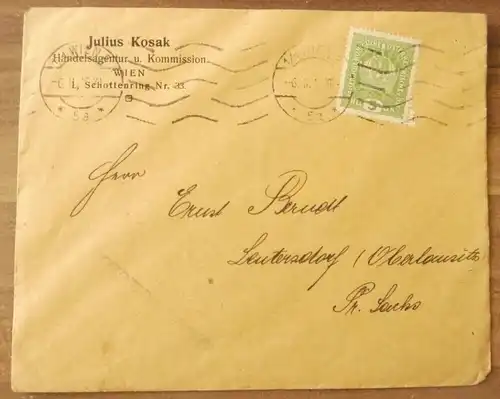 Julius Kosak
Handelsagentur u. Kommission
WIEN
I., Schottenring Nr. 33.
WIEN
5a
5a
Herrn
Ernst Berndt
Leutersdorf / Oberlausitz
Pr. Sachs